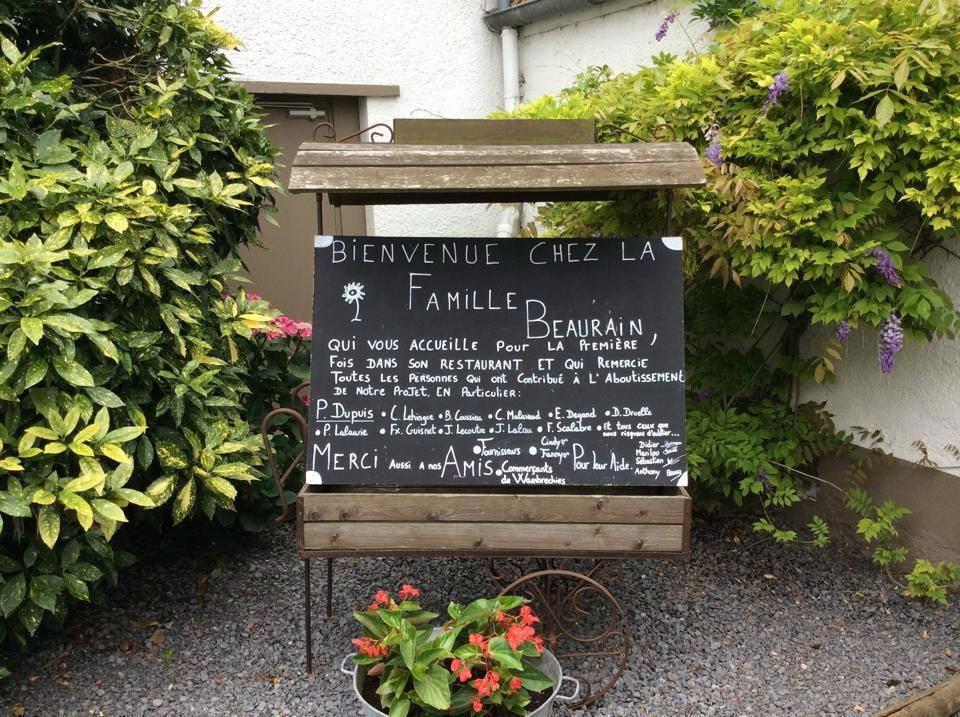 BIENVENUE CHEZ LA
FAMILLE
BEAURAIN,
QUI VOUS ACCUEILLE POUR LA PREMIÈRE
FOIS DANS SON RESTAURANT ET QUI REMERCIE
TOUTES LES PERSONNES QUI ONT CONTRIBUÉ À L'ABOUTISSEMENT
DE NOTRE PROJET, EN PARTICULIER:
P. Dupuis • C. Lehingue • B. Coussieu • C. Malavaud • E. Degand • D. Druelle
• P. Lalaurie • Fx. Guisnet • J. Lecoutre • J. Lalau • F. Scalabre • Et tous ceux que
nous risquons d'oublier...
MERCI AUSSI A NOS AMIS • Fournisseurs • Cindy
Fanny
• Commerçants
de Wambrechies
Pour leur Aide.
Didier
Marilou
Sébastien
Anthony